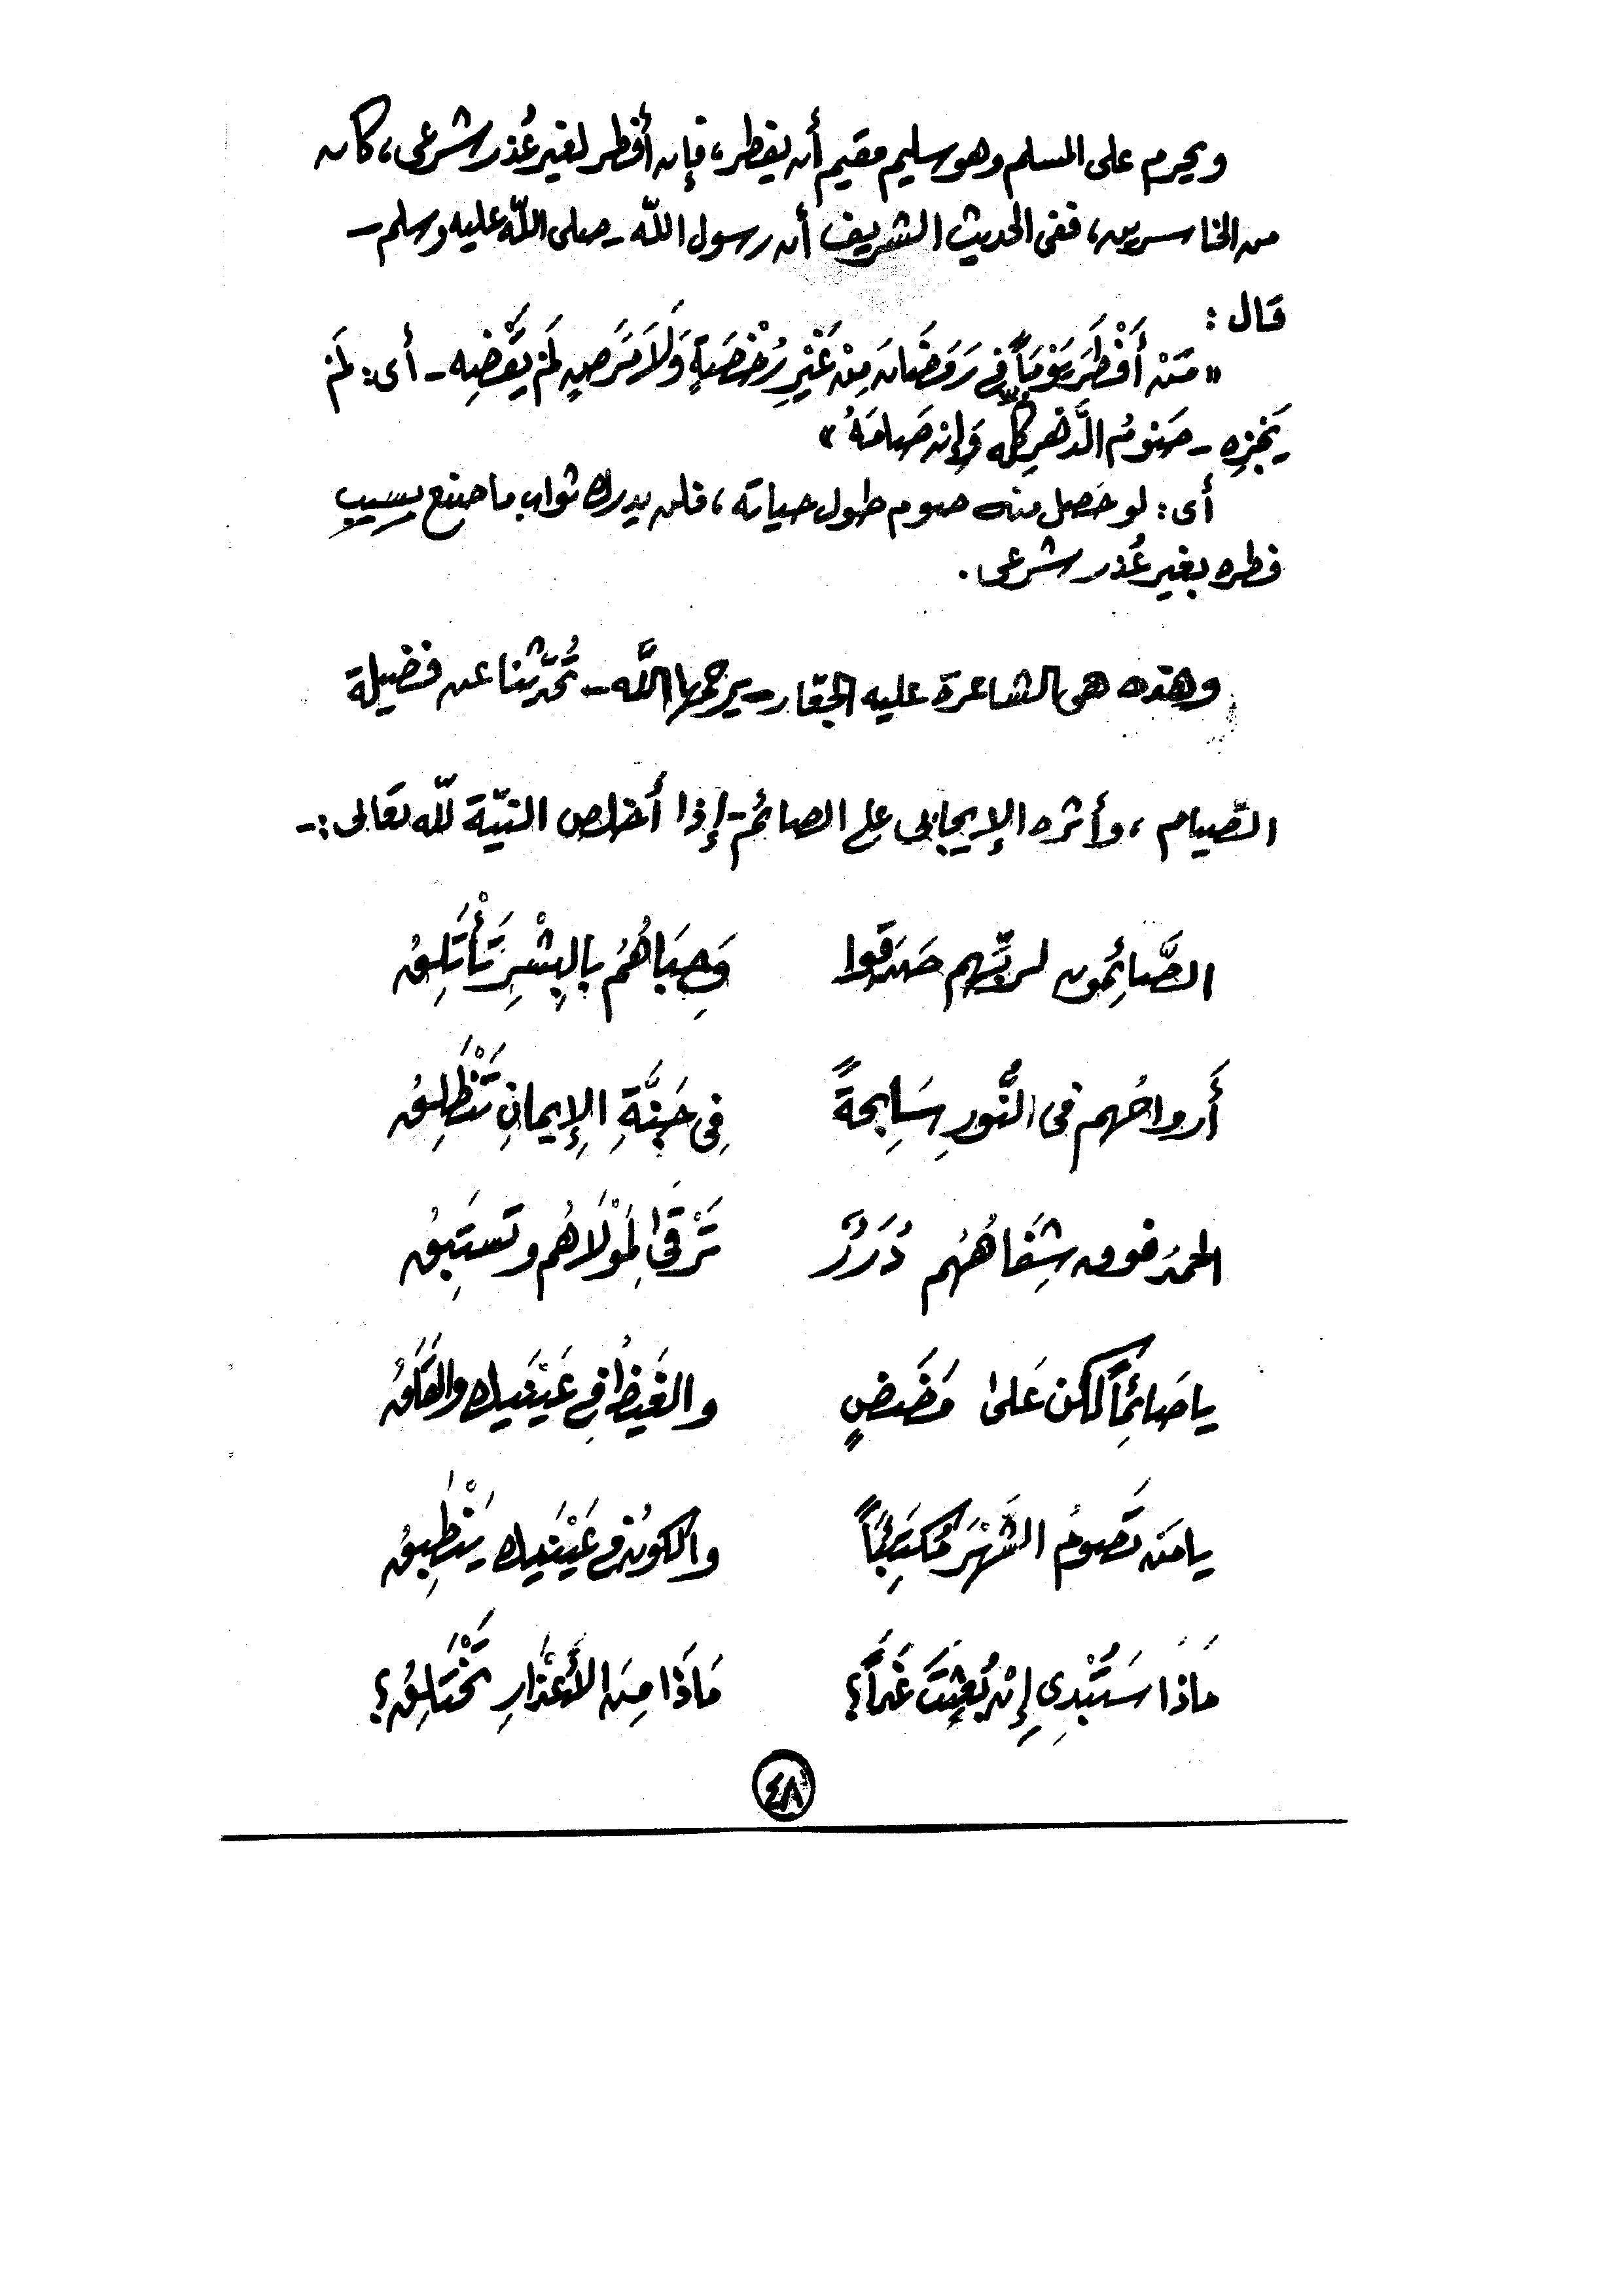 ويحرم على المسلم وهو سليم مقيم أن يفطر، فإن أفطر لغير عُذر شرعى، كان
من الخاسرين، ففى الحديث الشريف أن رسول اللّه - صلى اللّه عليه وسلم -
قال :
« مَنْ أَفْطَرَ يَوْمَاً فِى رَمَضَانَ مِنْ غَيْرِ رُخْصَةٍ وَلاَ مَرَضٍ لَمْ يَقْضِهِ - أى: لَمْ
يَجْزِهِ - صَوْمُ الدَّهْرِ كُلِّهِ وَإِنْ صَامَهُ »
أى : لو حَصل منه صوم طول حياته ، فلن يدرك ثواب ما صنع بسبب
فطره بغير عُذر شرعى .
وهذه هى الشاعرة عليه الجقار - يرحمها اللَّه - تُحَدِّثنا عن فضيلة
الصِّيام ، وأثره الإيجابى على الصائم - إذا أخلص النيّة للّه تعَالى :-
الصَّائِمون لربِّهم صَدَقوا وَجِبَاهُمُ بالبِشْرِ تَأْتَلِقُ
أَرواحُهم فى النُّورِ سَابِحةً فِى جَنَّةِ الإِيمانِ تَنْطَلِقُ
الحمدُ فوق شِفَاهُهُم دُرَرٌ تَرْقَىٰ لِمَوْلَاهُم وتَستَبِقُ
يا صَائِمَاً لكن عَلىٰ مَضَضٍ والغَيظُ فِى عَيْنَيك والقَلَقُ
يا مَن تَصومُ الشَّهْرَ مُكتَئِبَاً والكونُ فى عَيْنَيك يَنْطَبِقُ
مَاذَا سَتُبْدِى إِنْ بُعِثْتَ غَدَاً؟ مَاذَا مِنَ الأَعْذَارِ تَخْتَلِقُ؟
٤٨